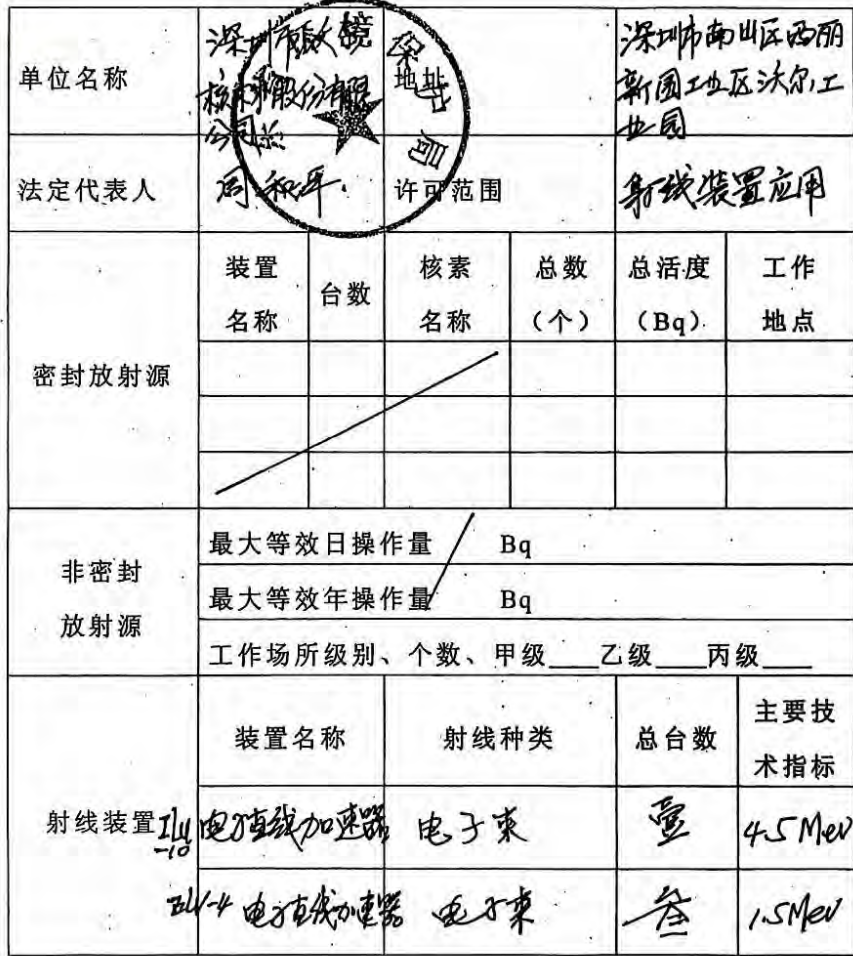 单位名称
深圳市
核材料股份有限
公司
地址
深圳市南山区西丽
新围工业区沃尔工
业园
法定代表人
周和平
许可范围
射线装置应用
护
局
密封放射源
装置
名称
台数
核素
名称
总数
（个）
总活度
（Bq）
工作
地点
非密封
放射源
最大等效日操作量 Bq
最大等效年操作量 Bq
工作场所级别、个数、甲级____乙级____丙级____
射线装置
装置名称
射线种类
总台数
主要技
术指标
ILU
-10
电子直线加速器
电子束
壹
4.5 MeV
ELV-4
电子直线加速器
电子束
叁
1.5 MeV